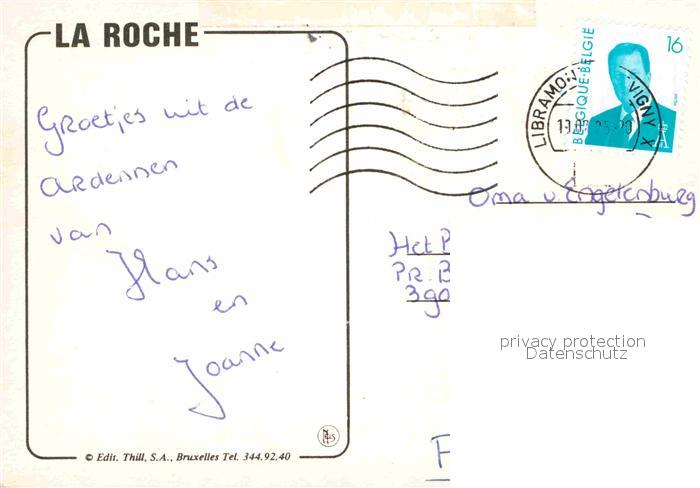 LA ROCHE
Groetjes uit de
Ardennen
van
Hans
en
Joanne
© Edit. Thill, S.A., Bruxelles Tel. 344.92.40
16
BELGIQUE·BELGIE
LIBRAMON VIGNY X
Oma v. Engelenburg
Het P
Pr. B
390
privacy protection
Datenschutz